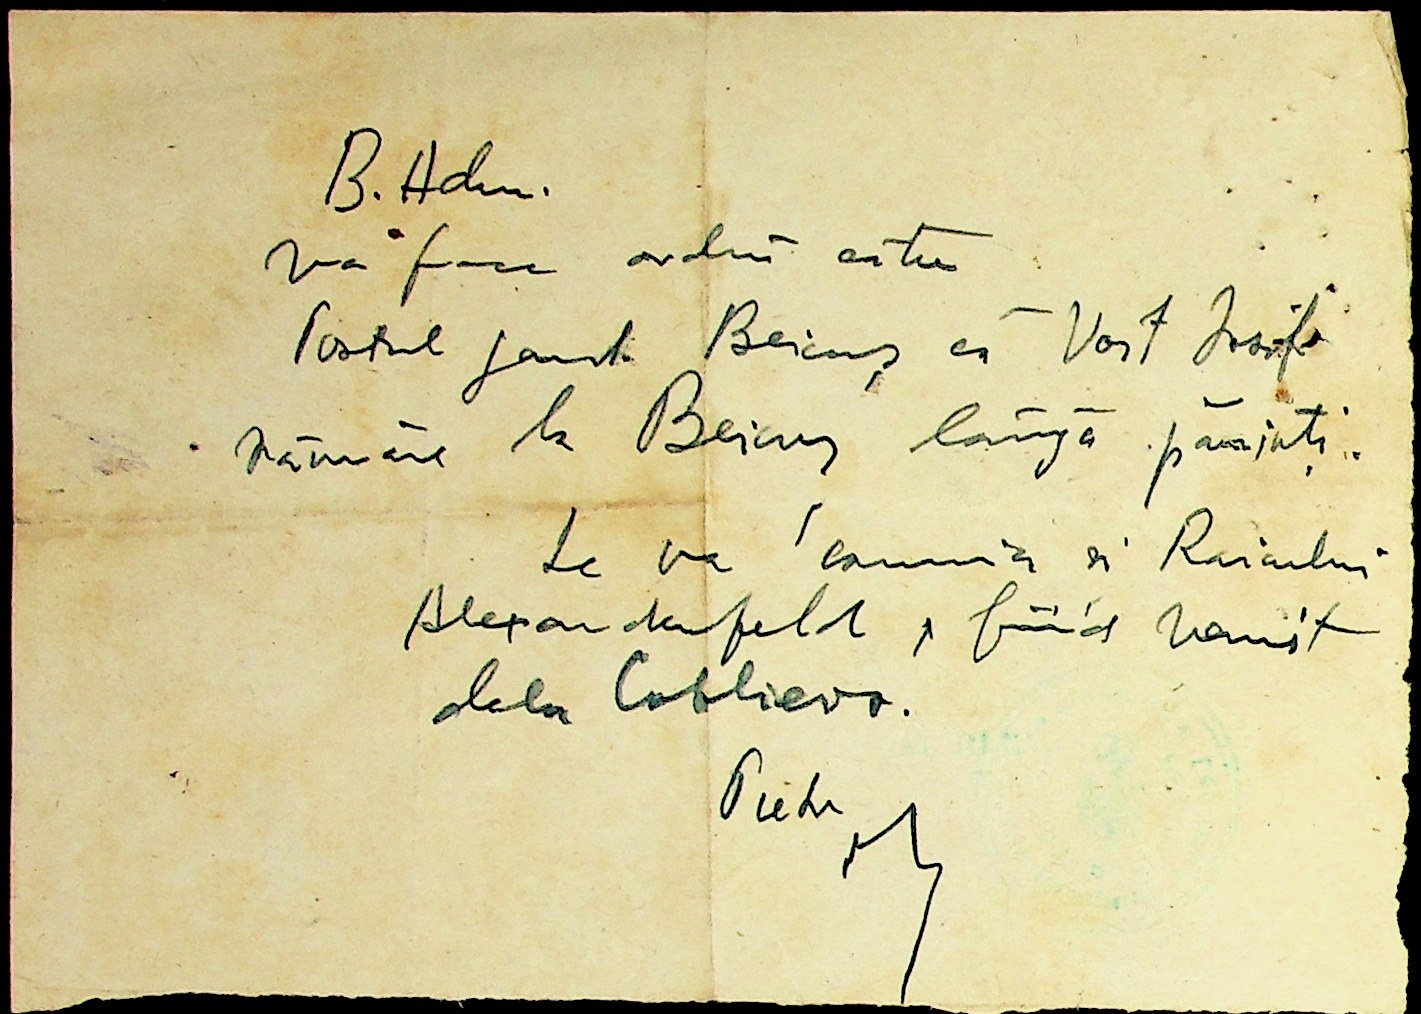 B. Adm.
va face ordin către
Postul jand. Beicuș că Vost Iosif
rămâne la Beicuș lângă părinți.
Se va comunica și Raionului
Alexanderfeld, fiind venit
dela Coblievo.